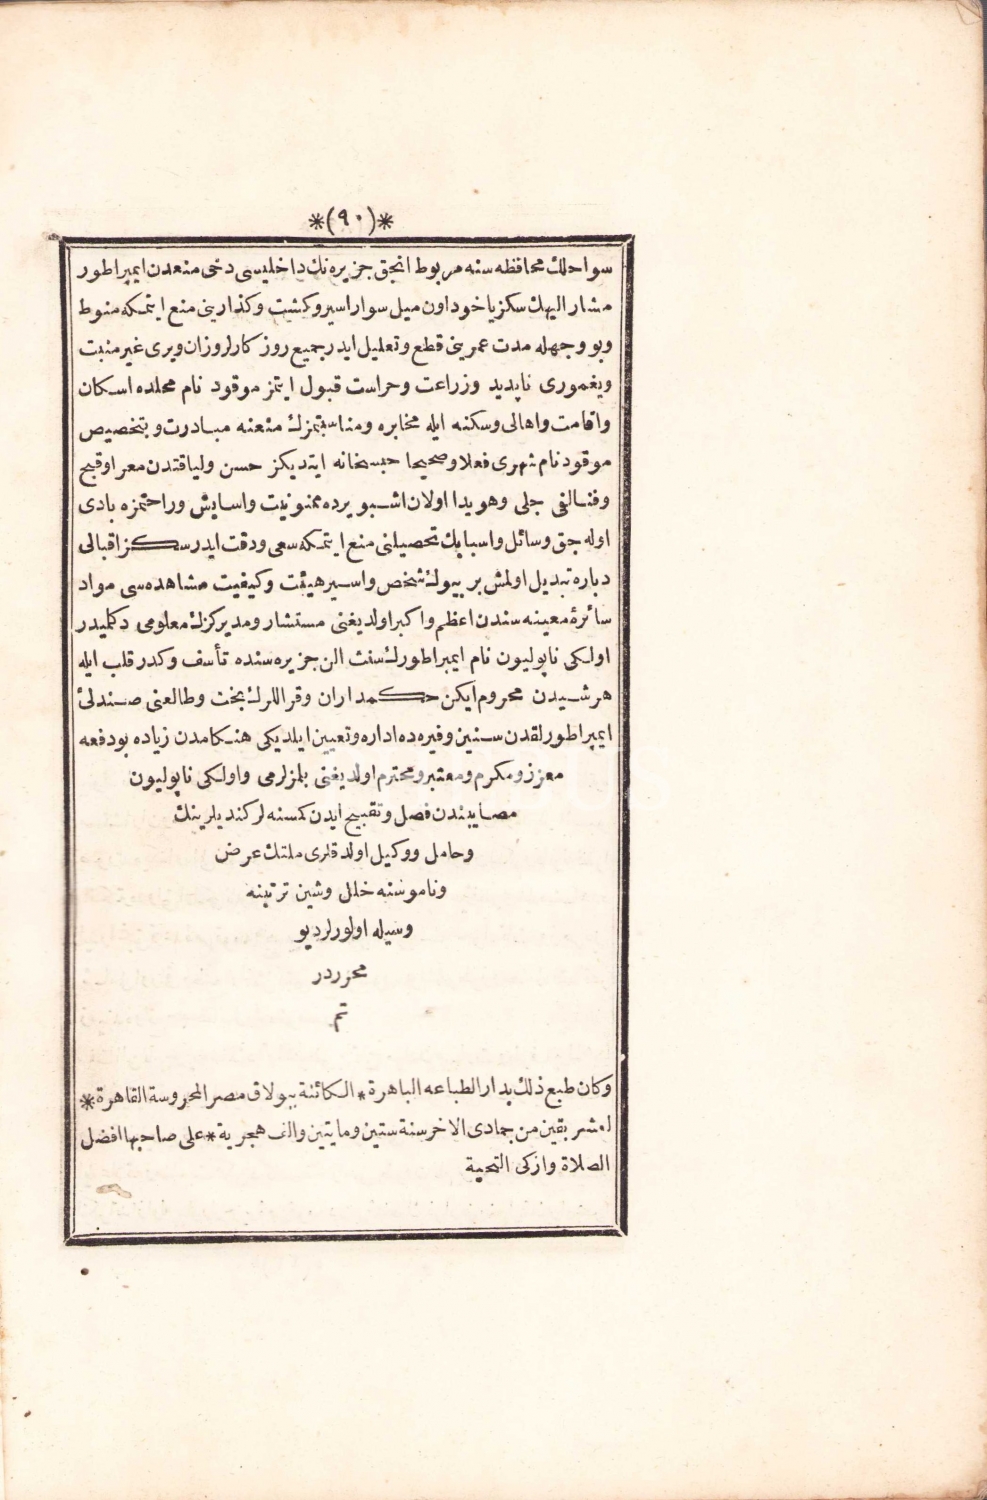 *(٩٠)*
سواحلك محافظه سنه مربوط انجق جزيره نك داخليسنى دخى منعدن ايمپراطور
مشار اليهك سكز ياخود اون ميل سوار اسير وكشت وكذارينى منع ايتمكه منوط
وبو وجهله مدت عمرينى قطع وتعليل ايدر جميع روز كارلر وزان ويرى غير منبت
ويغمورى ناپديد وزراعت وحراست قبول ايتمز موقود نام محلده اسكان
واقامت واهالى وسكنه ايله مخابره ومناسبتمزك منعنه مبادرت وبتخصيص
موقود نام شهرى فعلا وصحيحا حبسخانه ايتديكز حسن ولياقتدن معرا وقبح
وفنالغى جلى وهويدا اولان اشبو يرده ممنونيت واسايش وراحتمزه بادى
اوله جق وسائل واسبابك تحصيلنى منع ايتمكه سعى ودقت ايدرسكز اقبالى
دباره تبديل اولمش بر بيوك شخص واسير هيئت وكيفيت مشاهده سى مواد
سائرۀ معينه سندن اعظم واكبر اولديغنى مستشار ومديركزك معلومى دكلميدر
اولكى ناپوليون نام ايمپراطورك سنت الن جزيره سنده تأسف وكدر قلب ايله
هر شيدن محروم ايكن حكمداران وقراللرك بخت وطالعنى صندلئ
ايمپراطورلقدن سنين وفيره ده اداره وتعيين ايلديكى هنكامدن زياده بو دفعه
معزز ومكرم ومعتبر ومحترم اولديغنى بلمزلرمى واولكى ناپوليون
مصايبندن فصل وتقبيح ايدن كمسنه لر كنديلرينك
وحامل ووكيل اولدقلرى ملتك عرض
وناموسنه خلل وشين ترتبنه
وسيله اولورلر ديو
محرر در
تم
وكان طبع ذلك بدار الطباعه الباهرة * الكائنة ببولاق مصر المحروسة القاهرة *
لعشر بقين من جمادى الاخر سنة ستين ومايتين والف هجرية * على صاحبها افضل
الصلاة وازكى التحية